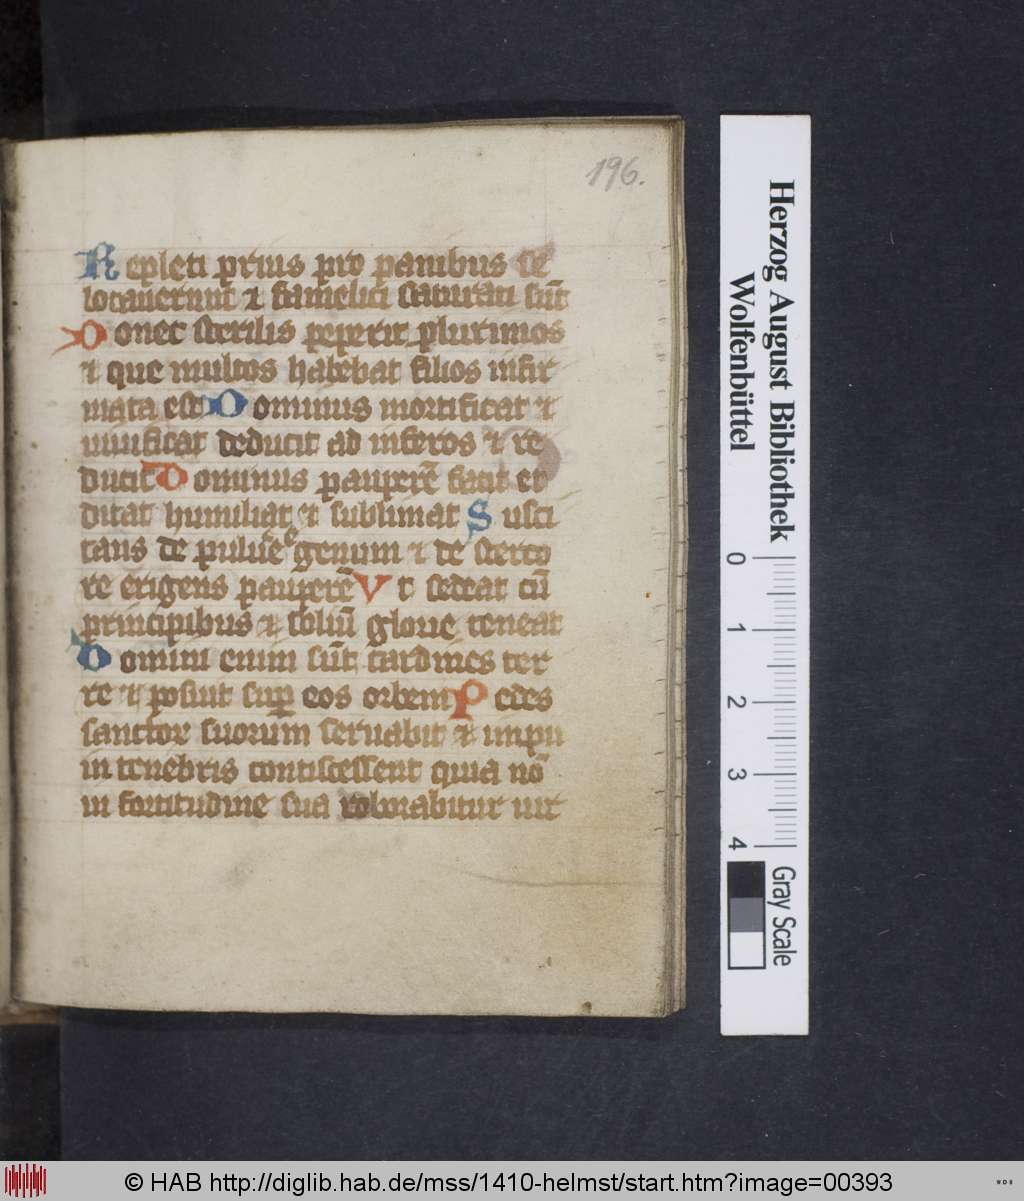 196.
Repleti prius pro panibus se
locauerunt ⁊ famelici saturati sūt
Donec sterilis peperit plurimos
⁊ que multos habebat filios infir
mata est Dominus mortificat ⁊
uiuificat deducit ad inferos ⁊ re
ducit Dominus pauperē facit et
ditat humiliat ⁊ subleuat Susci
tans de puluēe egenum ⁊ de sterco
re erigens pauperē Vt sedeat cū
principibus ⁊ soliū glorie teneat
Domini enim sūt cardines ter
re ⁊ posuit sup eos orbem Pedes
sanctor suorum seruabit ⁊ impii
in tenebris conticescent quia nō
in fortitudine sua roborabitur uir
Herzog August Bibliothek
Wolfenbüttel
0 1 2 3 4
Gray Scale
© HAB http://diglib.hab.de/mss/1410-helmst/start.htm?image=00393